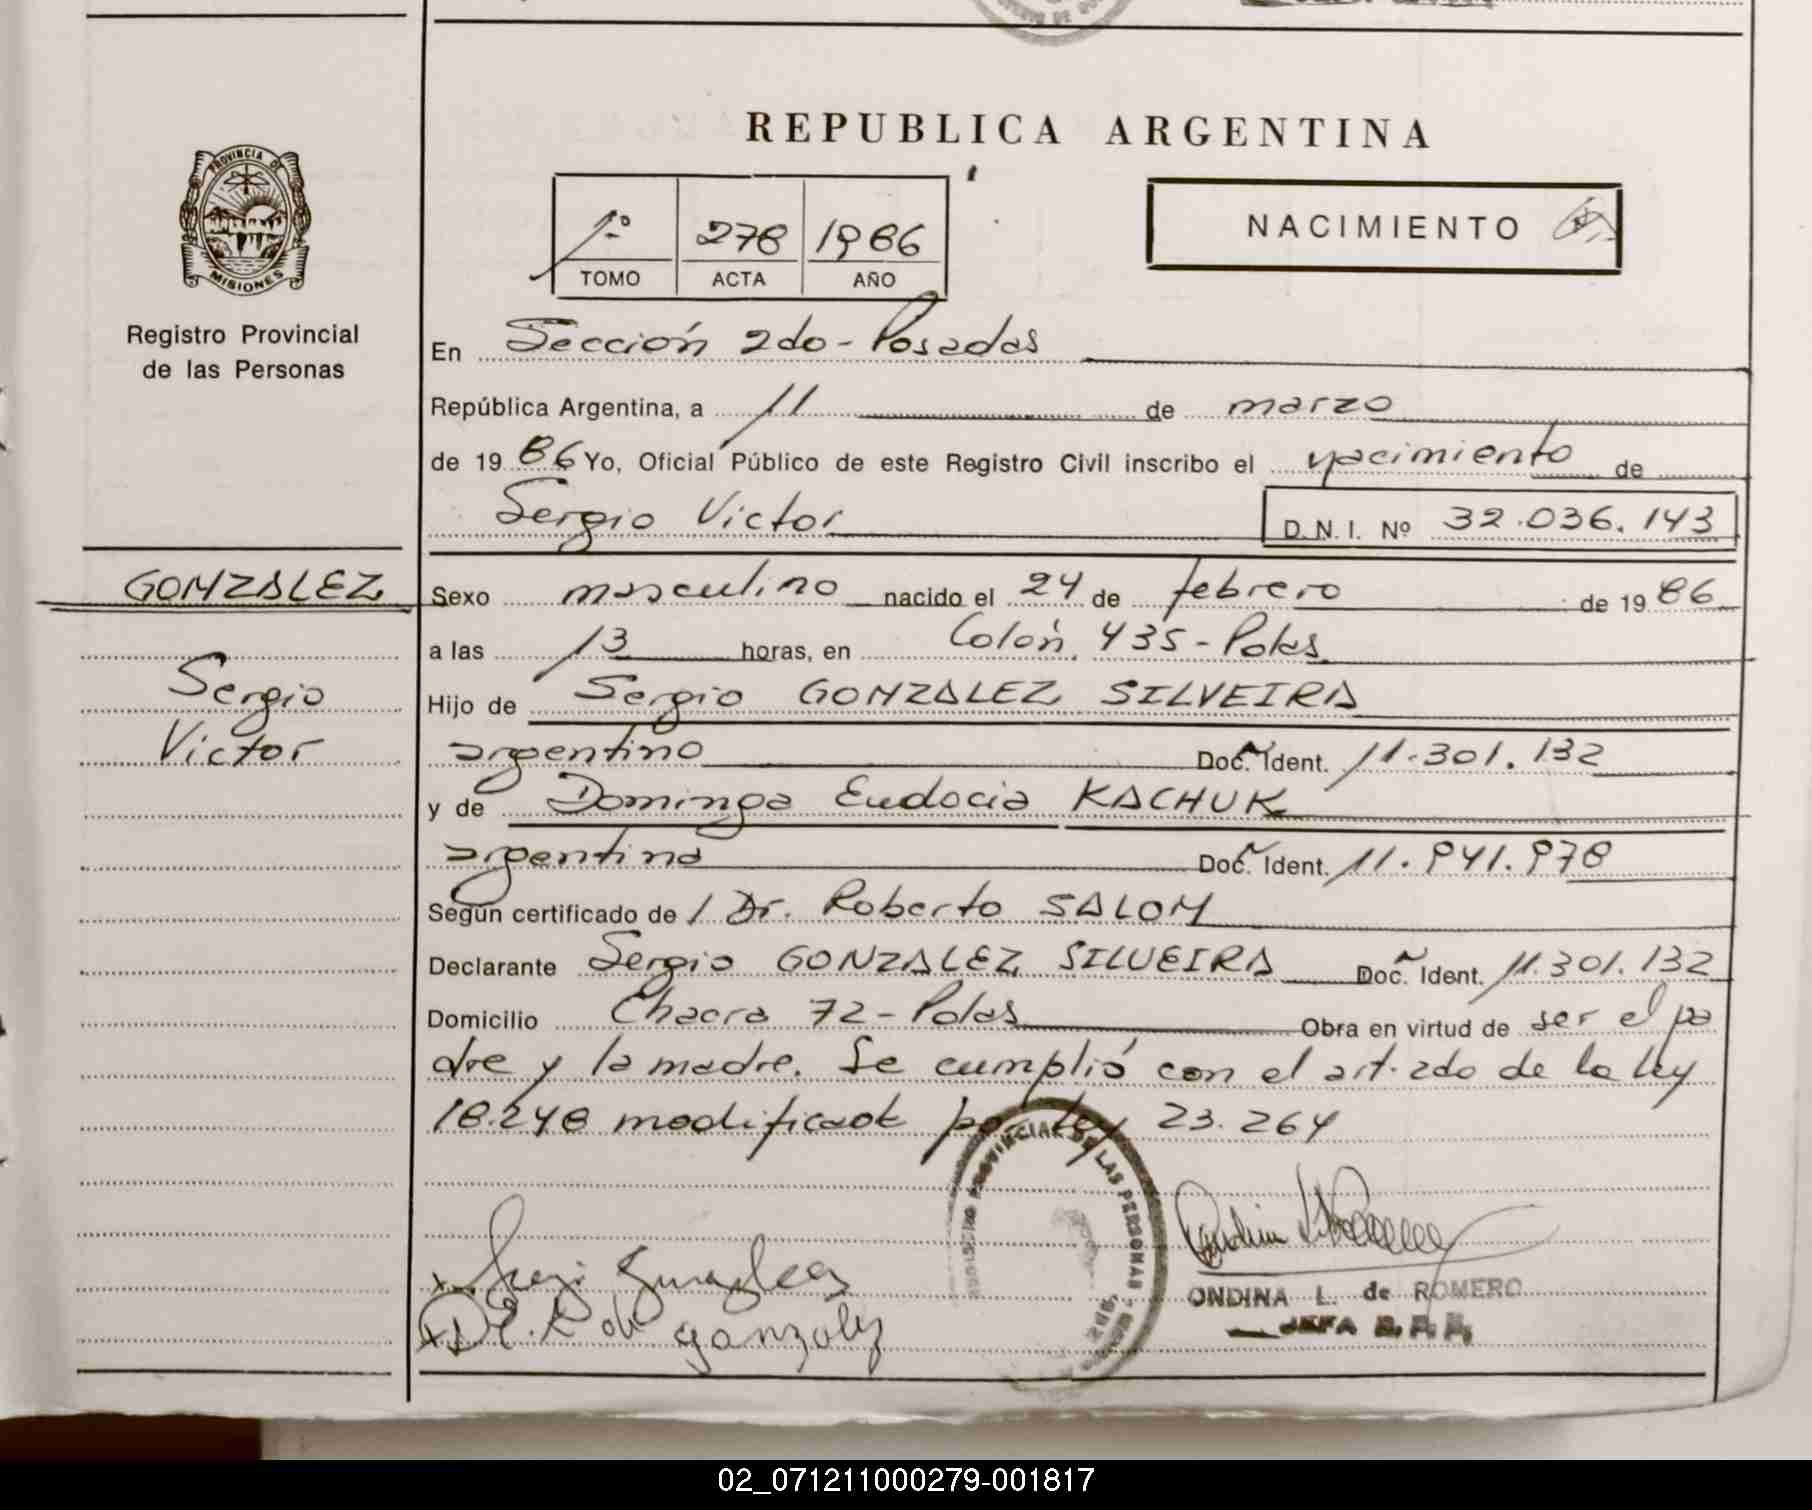 REPUBLICA ARGENTINA
PROVINCIA DE
MISIONES
Registro Provincial
de las Personas
1º 278 1986
TOMO ACTA AÑO
NACIMIENTO
En Sección 2do - Posadas
República Argentina, a 11 de marzo
de 19 86 Yo, Oficial Público de este Registro Civil inscribo el nacimiento de
Sergio Victor D. N. I. Nº 32.036.143
GONZALEZ
Sergio
Victor
Sexo masculino nacido el 24 de febrero de 19 86
a las 13 horas, en Colón 435 - Pdas
Hijo de Sergio GONZALEZ SILVEIRA
argentino Doc. Ident. 11.301.132
y de Dominga Eudocia KACHUK
argentina Doc. Ident. 11.941.978
Según certificado de / Dr. Roberto SALOM
Declarante Sergio GONZALEZ SILVEIRA Doc. Ident. 11.301.132
Domicilio Chacra 72 - Pdas Obra en virtud de ser el pa
dre y la madre. Se cumplió con el art. 2do de la ley
18.248 modificado por ley 23.264
PROVINCIAL DE LAS PERSONAS
D.E. K de Gonzalez
ONDINA L. de ROMERO
JEFA
02_071211000279-001817